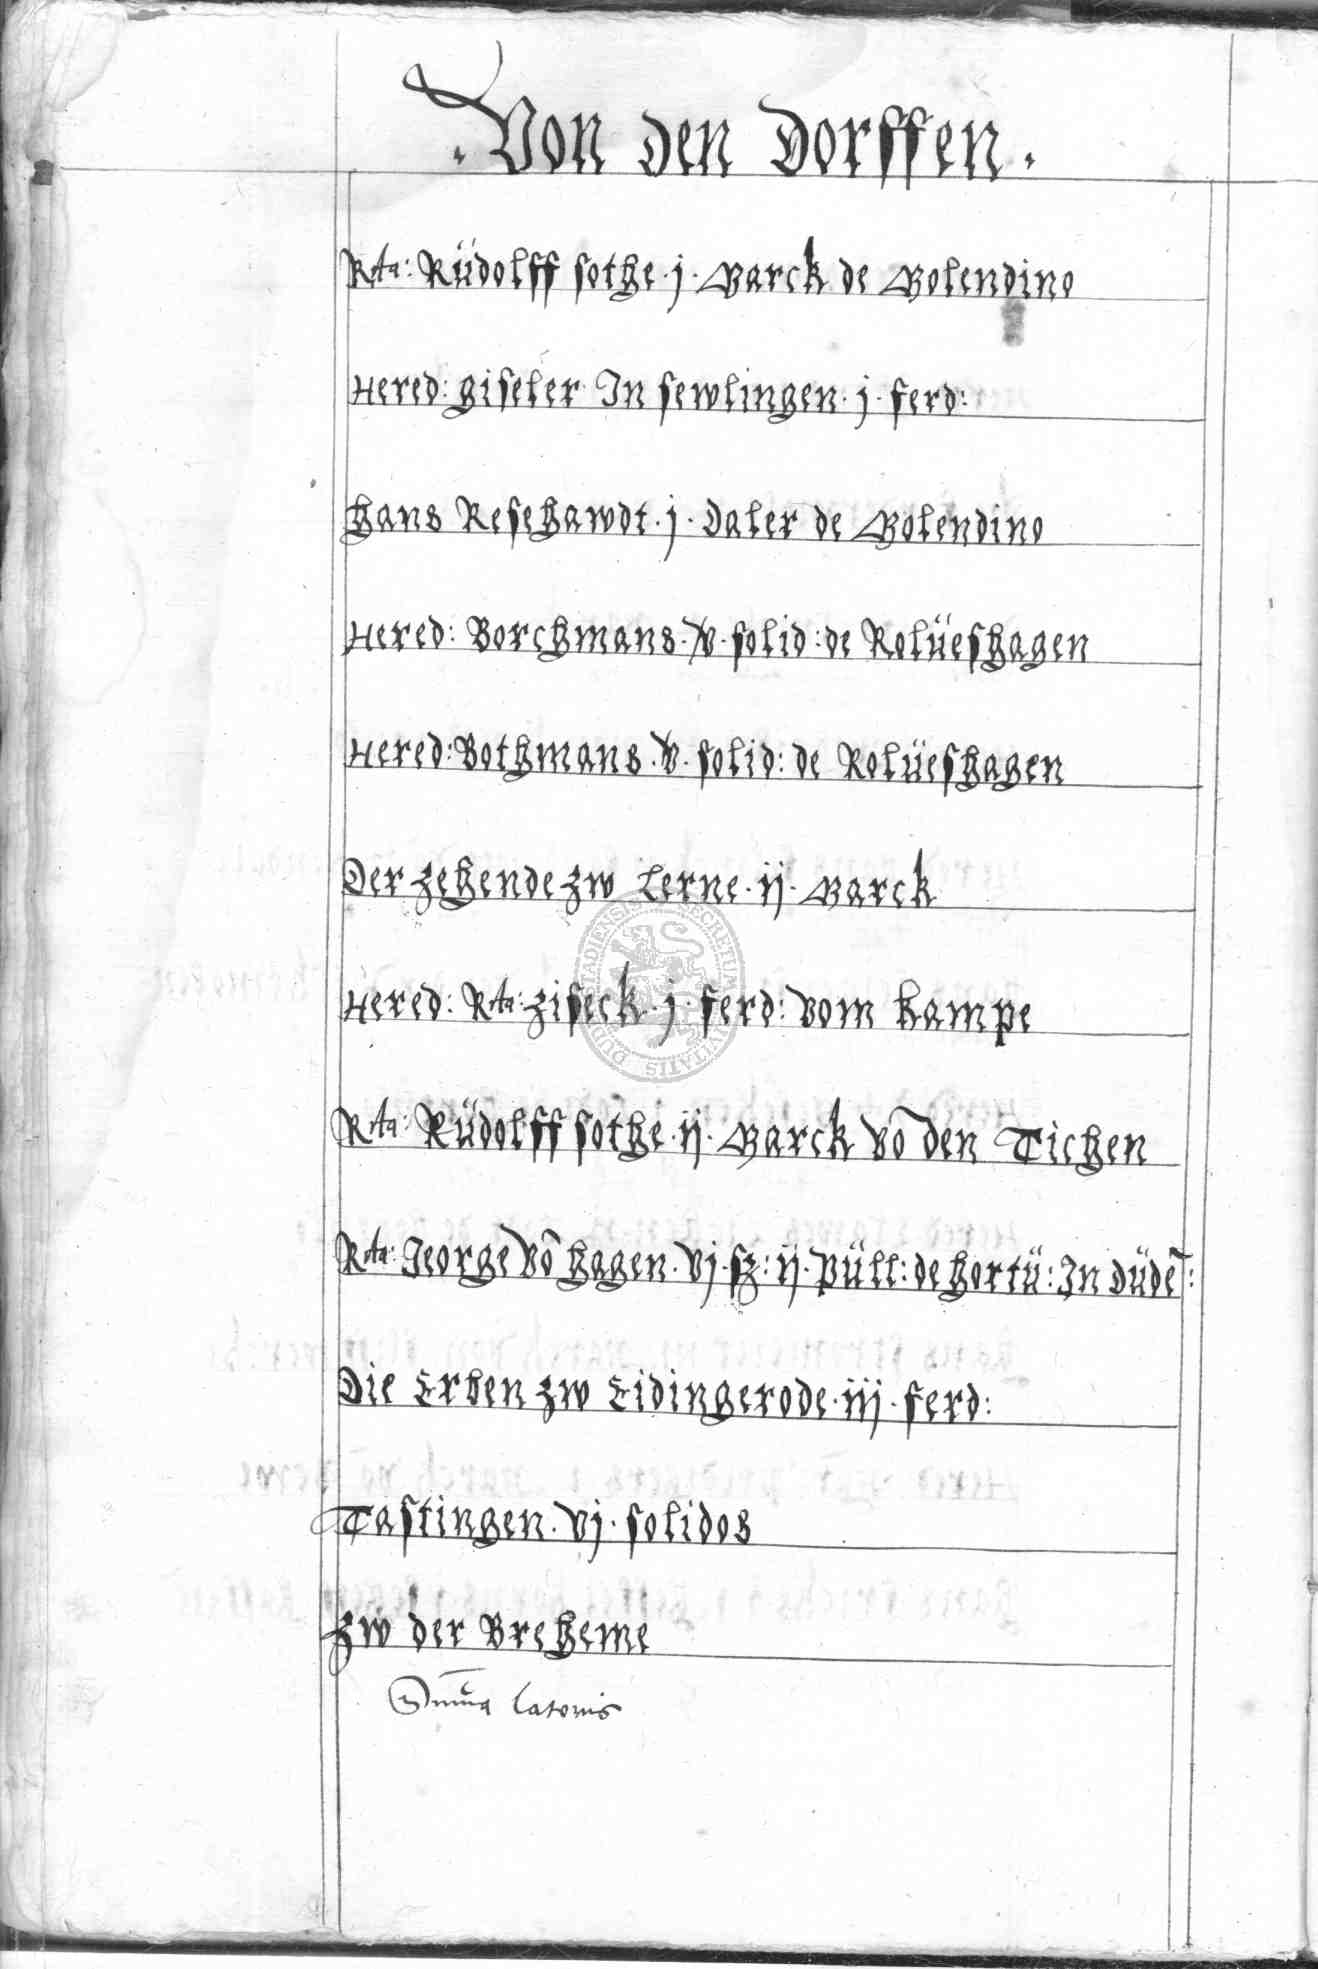 . Von den Dorffen .
Rta: Rüdolff sothe · j · Marck de Molendino
Hered: giseler In sewlingen · j · ferd:
Hans Resehawdt · j · Daler de Molendino
Hered: Borchmans · v · solid: de Rolüeshagen
Hered: Bothmans · v · solid: de Rolüeshagen
Der zehende zw Lerne · ij · Marck
Hered: Rta: ziseck · j · ferd: vom Kampe
Rta: Rüdolff sothe · ij · Marck vō den Tichen
Rta: Jeorge vō Hagen · vj · sz: ij · Püll: de hortü: In düdē:
Die Erben zw Eidingerode · iij · ferd:
Tastingen · vj · solidos
zw der Breheme
Sum̄a Lateris